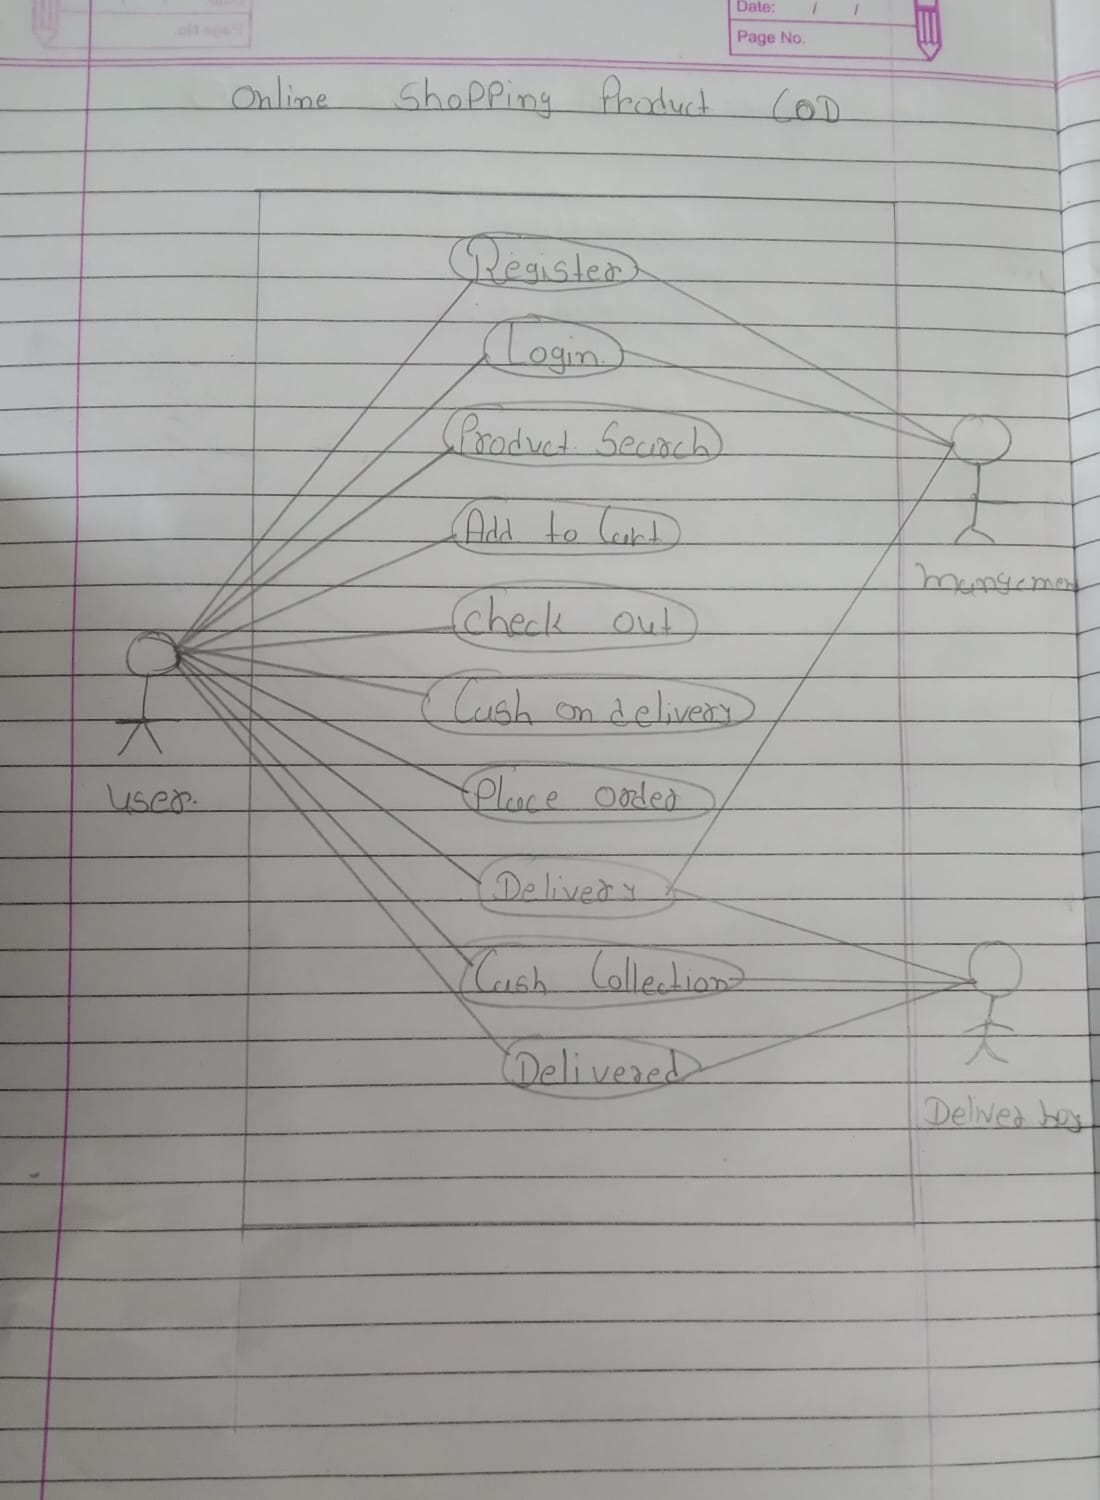 Date: / /
Page No.
Online Shopping Product COD
Register
Login
Product Search
Add to Cart
Check out
Cash on delivery
Place order
Delivery
Cash Collection
Delivered
user.
Deliver boy